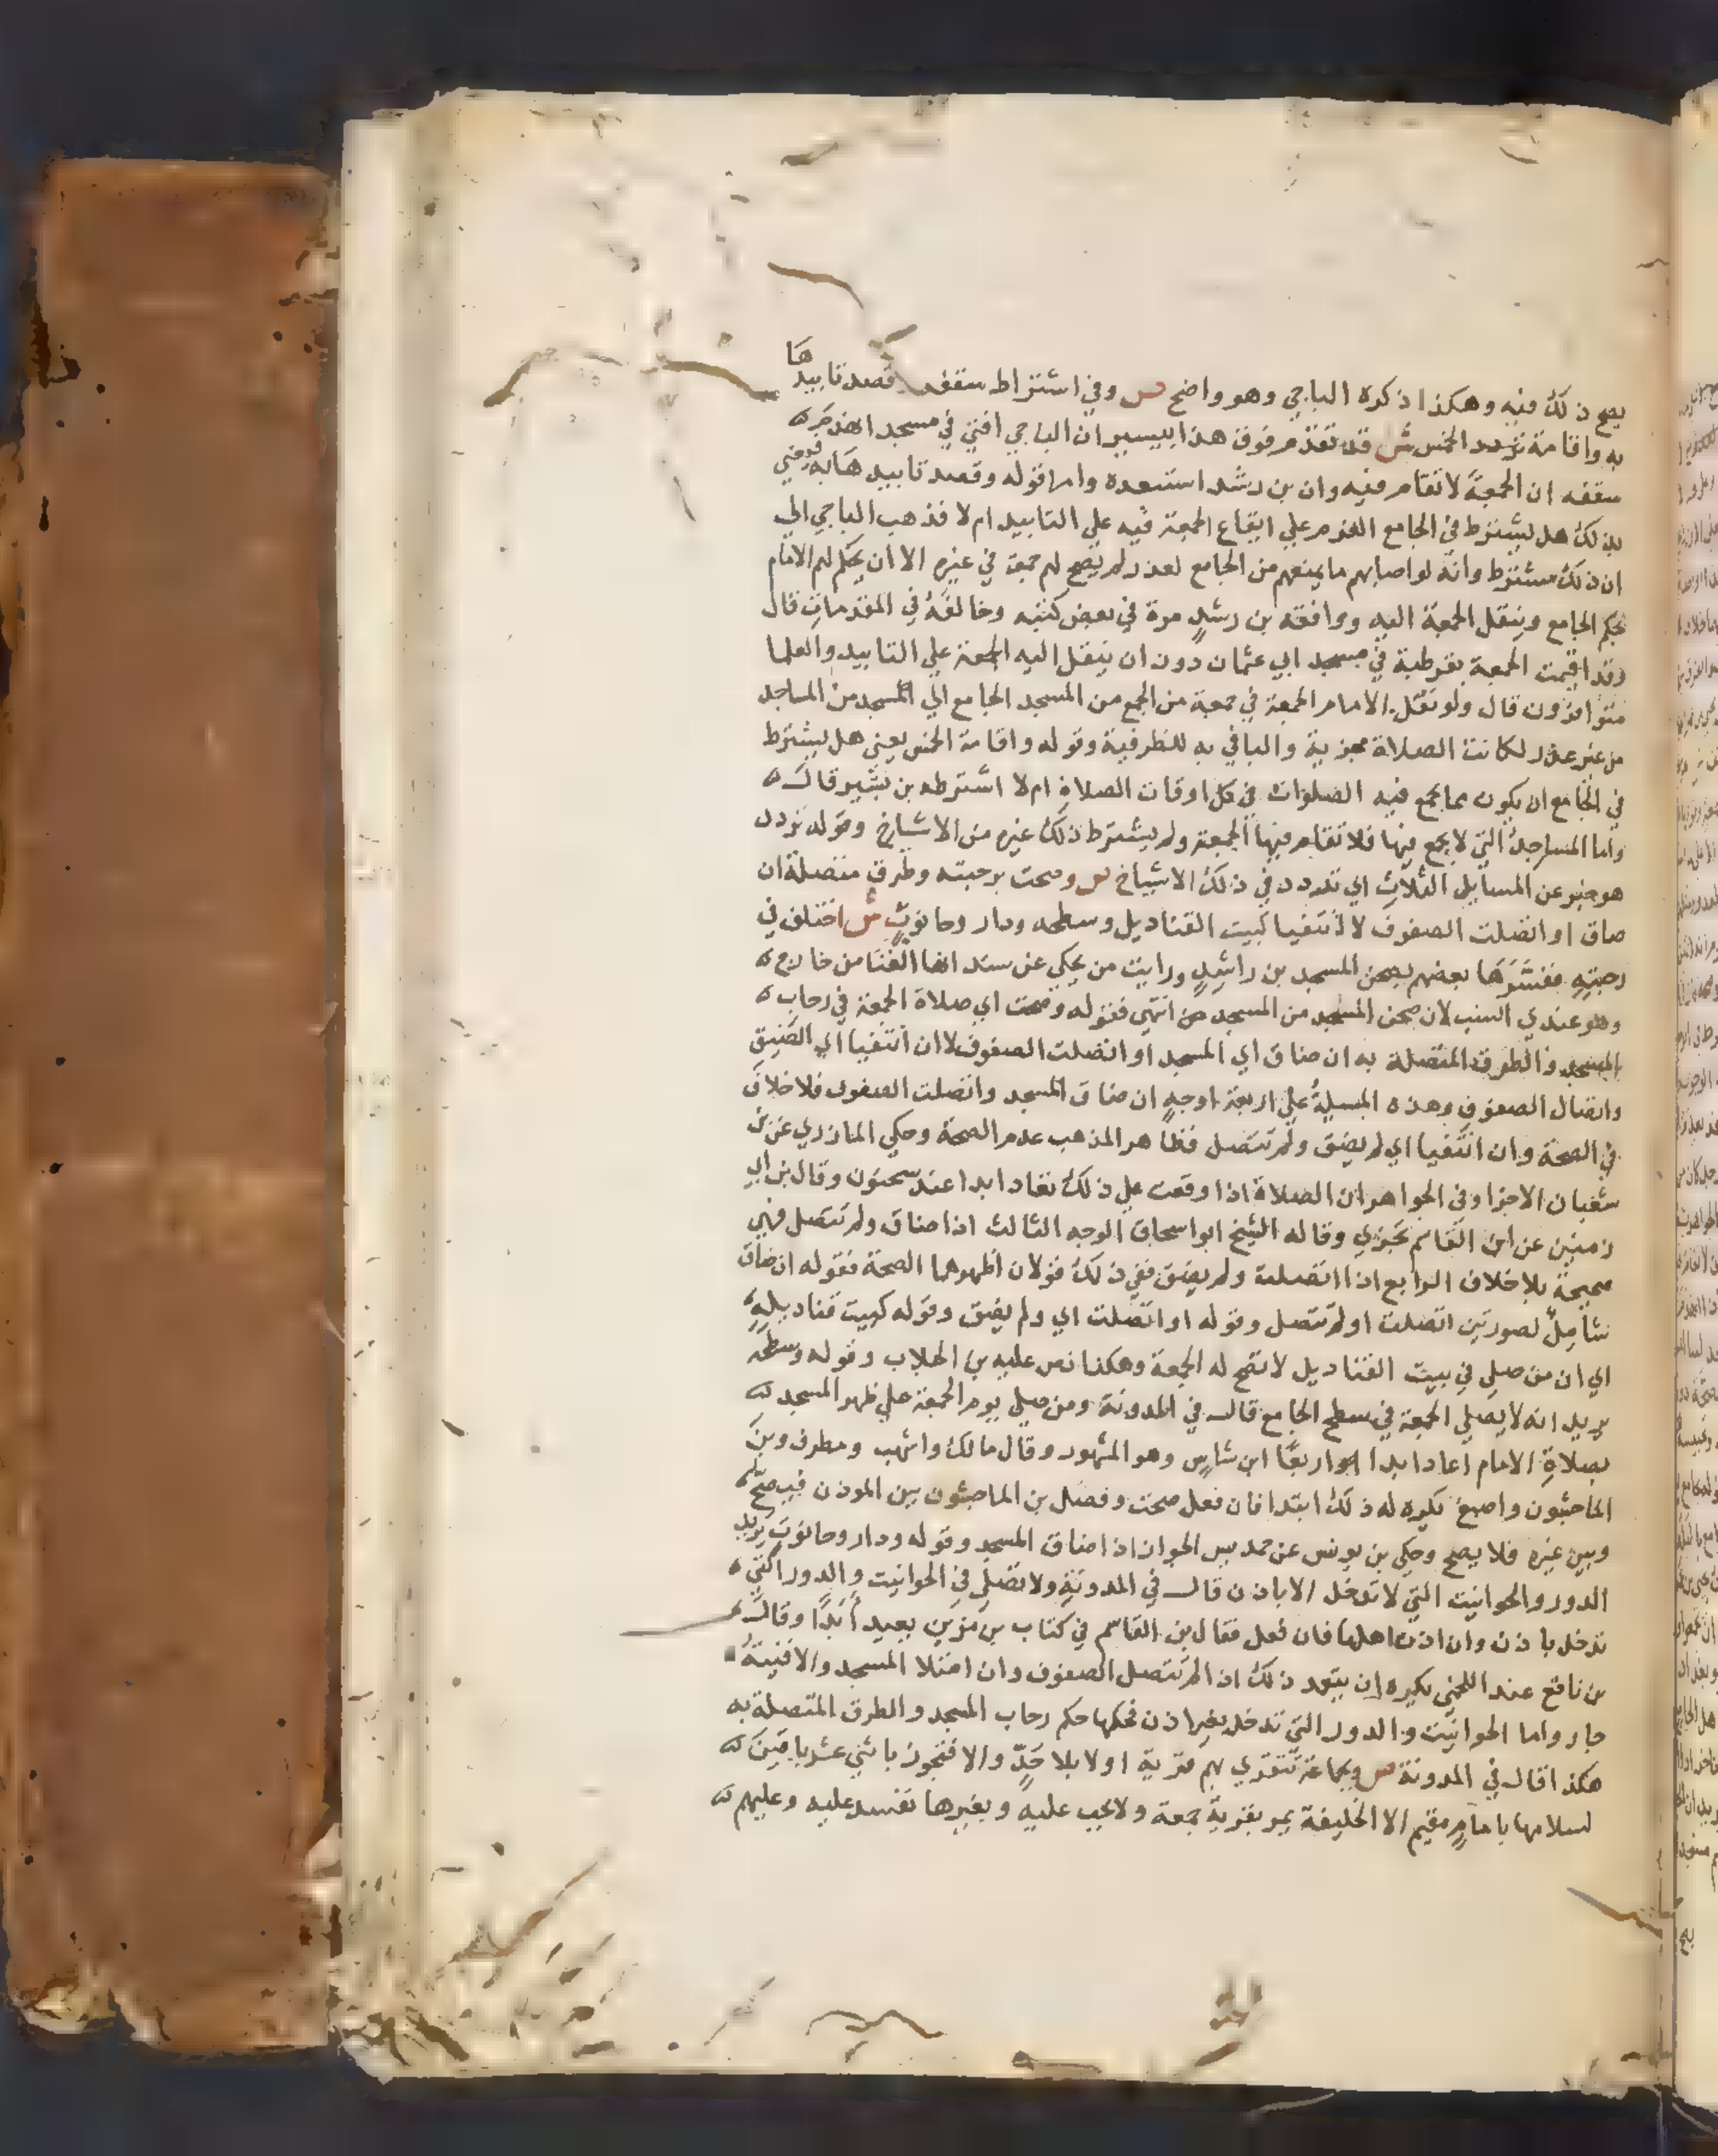 يصح ذلك فيه وهكذا ذكره الباجي وهو واضح ص وفي اشتراط سقفه وقصد تابيدها
به واقامة تردد الخمس ش قد تقدم فوق هذا بيسير ان الباجي افتي في مسجد انهدم
سقفه ان الجمعة لا تقام فيه وان بن رشد استبعده واما قوله وقصد تابيدها به فيعني
بذلك هل يشترط في الجامع العزم علي ايقاع الجمعة فيه علي التابيد ام لا فذهب الباجي الي
ان ذلك مشترط وانه لو اصابهم ما يمنعهم من الجامع لعذر لم يصح لهم جمعة في غيره الا ان يحكم لهم الامام
بحكم الجامع وينقل الجمعة اليه ووافقه بن رشد مرة في بعض كتبه وخالفه في المقدمات قال
وقد اقيمت الجمعة بقرطبة في مسجد ابي عثمان دون ان ينقل اليه الجمعة علي التابيد والعلما
متوافرون قال ولو نقل الامام الجمعة في جمعة من الجمع من المسجد الجامع الي المسجد من المساجد
من غير عذر لكانت الصلاة مجزية والبا في به للظرفية وقوله واقامة الخمس يعني هل يشترط
في الجامع ان يكون مما يجمع فيه الصلوات في كل اوقات الصلاة ام لا اشترطه بن بشير قال
واما المساجد التي لا يجمع فيها فلا تقام فيها الجمعة ولم يشترط ذلك غيره من الاشياخ وقوله تردد
هو خبر عن المسايل الثلاث اي تردد في ذلك الاشياخ ص وصحت برحبته وطرق متصلة ان
ضاق او اتصلت الصفوف لا انتفيا كبيت القناديل وسطحه ودار وحانوت ش اختلف في
رحبته ففسرها بعضهم بصحن المسجد بن راشد ورايت من يحكي عن سند انها الفنا من خارج
وهو عندي انسب لان صحن المسجد من المسجد من انتهي فقوله وصحت اي صلاة الجمعة في رحاب
المسجد والطرق المتصلة به ان ضاق اي المسجد او اتصلت الصفوف لا ان انتفيا اي الضيق
واتصال الصفوف وهذه المسيلة علي اربعة اوجه ان ضاق المسجد واتصلت الصفوف فلا خلاف
في الصحة وان انتفيا اي لم يضق ولم تتصل فظاهر المذهب عدم الصحة وحكي المازري عن بن
شعبان الاجزا وفي الجواهر ان الصلاة اذا وقعت علي ذلك تعاد ابدا عند سحنون وقال بن ابي
زمنين عن ابن القاسم تجزي وقاله الشيخ ابو اسحاق الوجه الثالث اذا ضاق ولم تتصل فهي
صحيحة بلا خلاف الرابع اذا اتصلت ولم يضق ففي ذلك قولان اظهرهما الصحة فقوله ان ضاق
شامل لصورتين اتصلت او لم تتصل وقوله او اتصلت اي ولم يضق وقوله كبيت قناديله
اي ان من صلي في بيت القناديل لا تصح له الجمعة وهكذا نص عليه بن الجلاب وقوله وسطحه
يريد انه لا يصلي الجمعة في سطح الجامع قال في المدونة ومن صلي يوم الجمعة علي ظهر المسجد
بصلاة الامام اعاد ابدا اربعا ابن شاس وهو المشهور وقال مالك واشهب ومطرف وبن
الماجشون واصبغ يكره له ذلك ابتدا فان فعل صحت وفصل بن الماجشون بين الموذن فيصح
وبين غيره فلا يصح وحكي بن يونس عن حمديس الجواز اذا ضاق المسجد وقوله ودار وحانوت يريد
الدور والحوانيت التي لا تدخل الا باذن قال في المدونة ولا تصلي في الحوانيت والدور التي
تدخل باذن وان اذن اهلها فان فعل فقال بن القاسم في كتاب بن مزين يعيد ابدا وقال
بن نافع عند اللخمي يكره ان يتعمد ذلك اذا لم تتصل الصفوف وان امتلا المسجد والافنية
جاز واما الحوانيت والدور التي تدخل بغير اذن فحكمها حكم رحاب المسجد والطرق المتصلة به
هكذا قال في المدونة ص وبجماعة تتقري بهم قرية اولا بلا حد والا فتجوز باثني عشر باقين
لسلامها بامام مقيم الا الخليفة يمر بقرية جمعة ولا يجب عليه وبغيرها تفسد عليه وعليهم